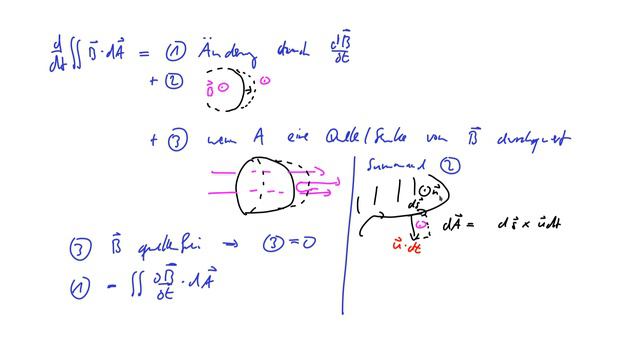 d/dt ∬ B⃗ · dA⃗ = ① Änderung durch dB⃗/dt
+ ② B⃗ ⊙ ⊙
+ ③ wenn A eine Quelle/Senke von B⃗ durchquert
Summand ②
⊙ n⃗
ds⃗
u⃗·dt
dA⃗ = ds⃗ × u⃗dt
③ B⃗ quellfrei → ③ = 0
① - ∬ ∂B⃗/∂t · dA⃗